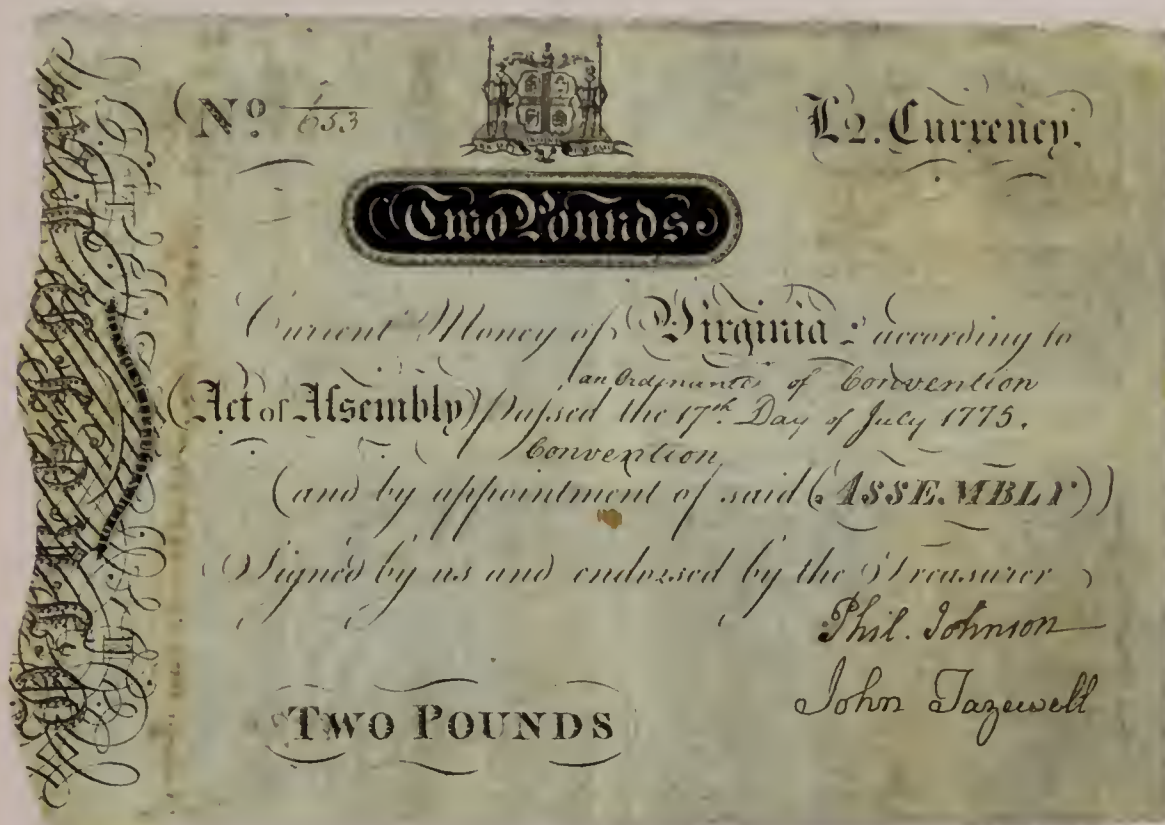 No 653
£2. Currency.
Two Pounds
Current Money of Virginia : according to
an Ordinance of Convention
(Act of Assembly) passed the 17th. Day of July 1775.
Convention
(and by appointment of said (ASSEMBLY))
Signed by us and endorsed by the Treasurer
Phil. Johnson
John Tazewell
TWO POUNDS